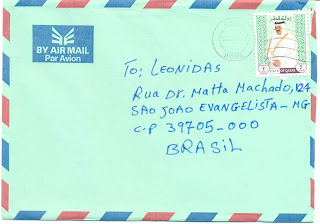 BY AIR MAIL
Par Avion
STATE OF QATAR
DOHA
To: LEONIDAS
Rua Dr. Matta Machado, 124
SAO JOAO EVANGELISTA - MG
C.P 39705-000
BRASIL